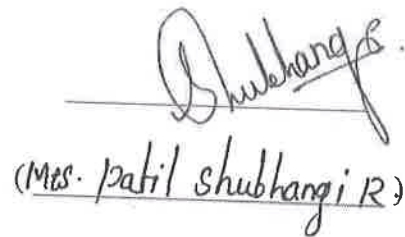 Shubhangi
(Mrs. Patil Shubhangi R)